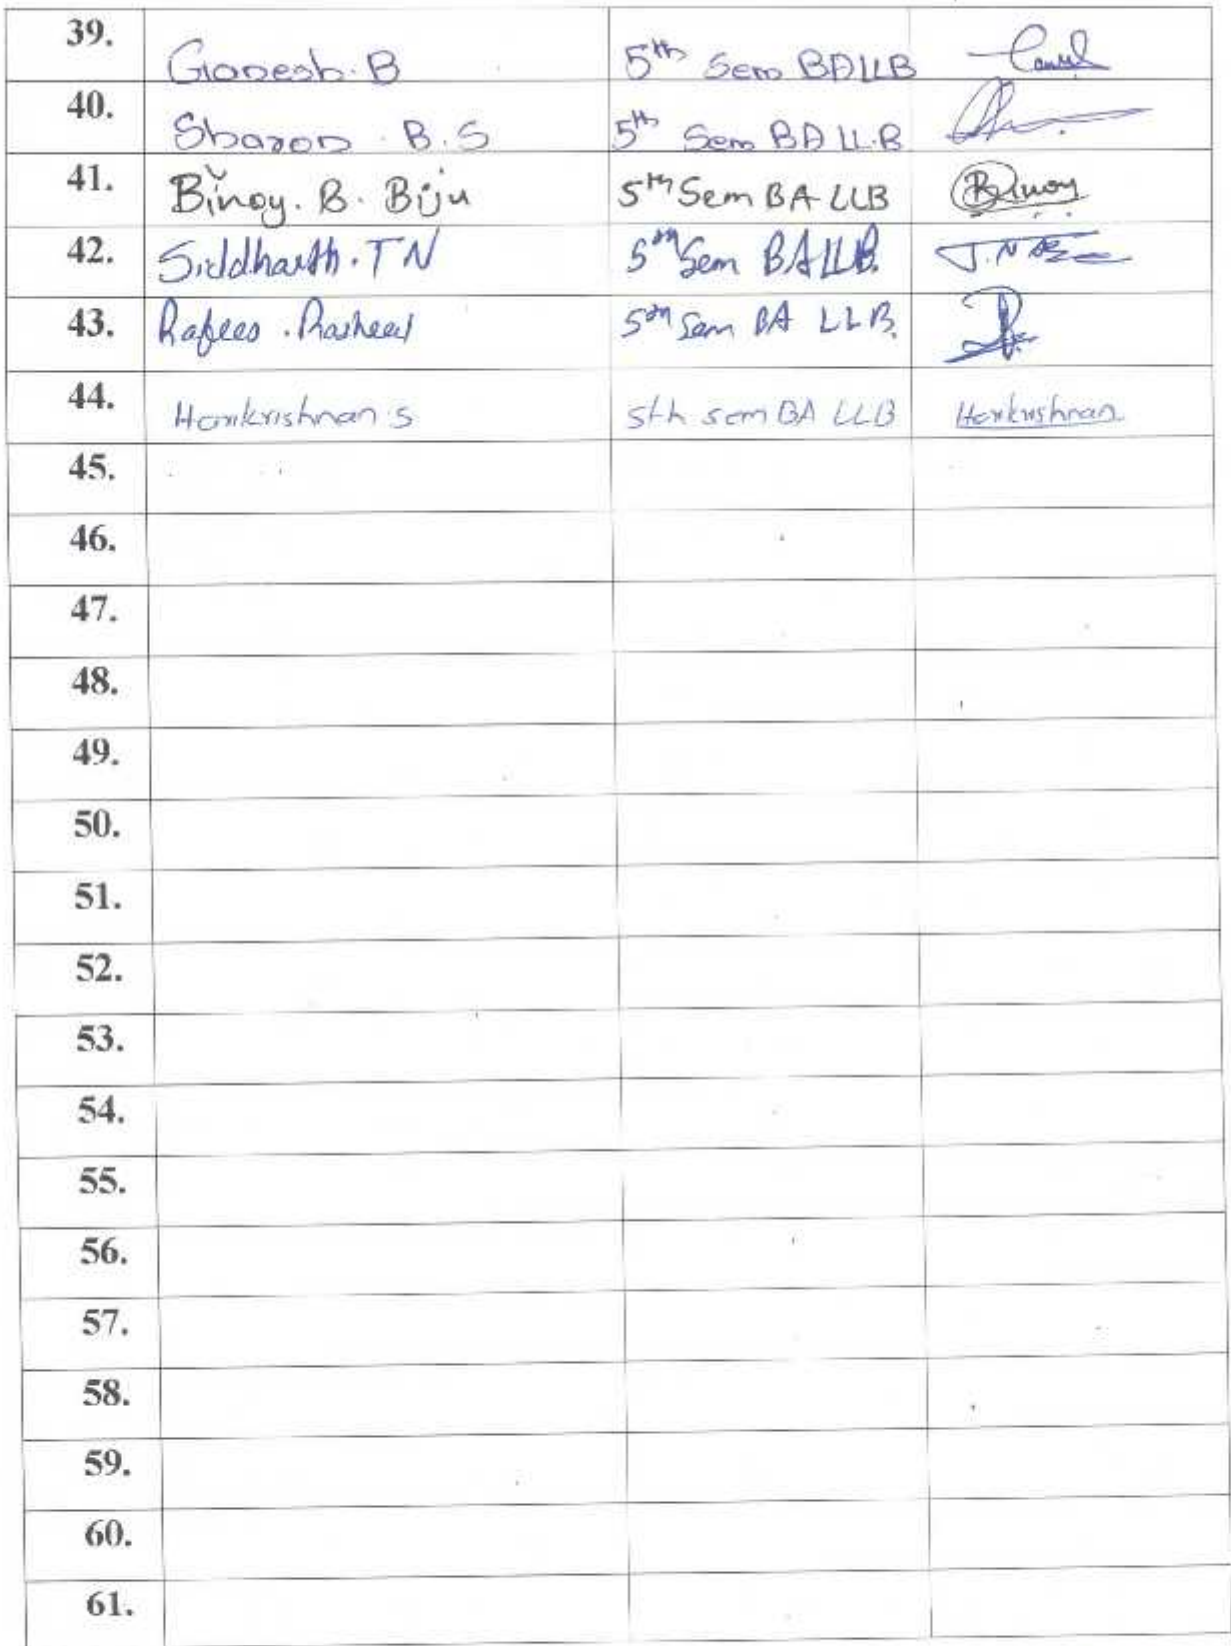 39. Ganesh. B 5th Sem BALLB
40. Sharon . B.S 5th Sem BA LL.B
41. Binoy. B. Biju 5th Sem BA LLB Binoy
42. Siddharth. T N 5th Sem BALLB. T.N
43. Rafees . Rasheed 5th Sem BA LLB.
44. Harikrishnan S 5th sem BA LLB Harikrishnan
45.
46.
47.
48.
49.
50.
51.
52.
53.
54.
55.
56.
57.
58.
59.
60.
61.